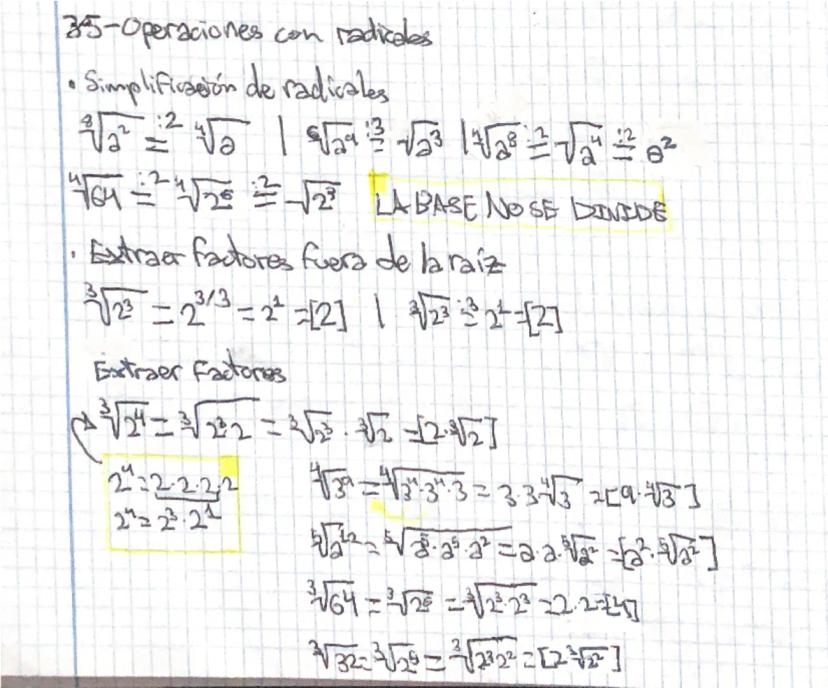 35-Operaciones con radicales
• Simplificación de radicales
⁸√a² =(:2) ⁴√a | ⁶√a⁹ =(:3) √a³ | ⁴√a⁸ =(:2) √a⁴ =(:2) a²
⁴√64 =(:2) ⁴√2⁶ =(:2) √2³ LA BASE NO SE DIVIDE
• Extraer factores fuera de la raíz
³√2³ = 2^(3/3) = 2¹ = [2] | ³√2³ =(:3) 2¹ = [2]
Extraer factores
³√2⁴ = ³√2³·2 = ³√2³ · ³√2 = [2·³√2]
2⁴ = 2·2·2·2
2⁴ = 2³·2¹
⁴√3⁹ = ⁴√3⁴·3⁴·3 = 3·3 ⁴√3 = [9·⁴√3]
⁵√a¹² = ⁵√a⁵·a⁵·a² = a·a·⁵√a² = [a²·⁵√a²]
³√64 = ³√2⁶ = ³√2³·2³ = 2·2 = [4]
³√32 = ³√2⁵ = ³√2³2² = [2 ³√2²]